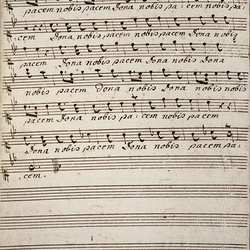 pacem Dona nobis pacem Dona nobis pa: cem nobis pa:
cem Dona nobis pacem Dona nobis pacem Dona nobis
pacem Dona nobis pacem Dona nobis pacem Dona nobis Dona
nobis pacem dona nobis Dona nobis pacem Dona nobis
pacem Dona nobis pa: cem nobis pacem
Dona nobis pacem Dona nobis pacem pa:
cem.